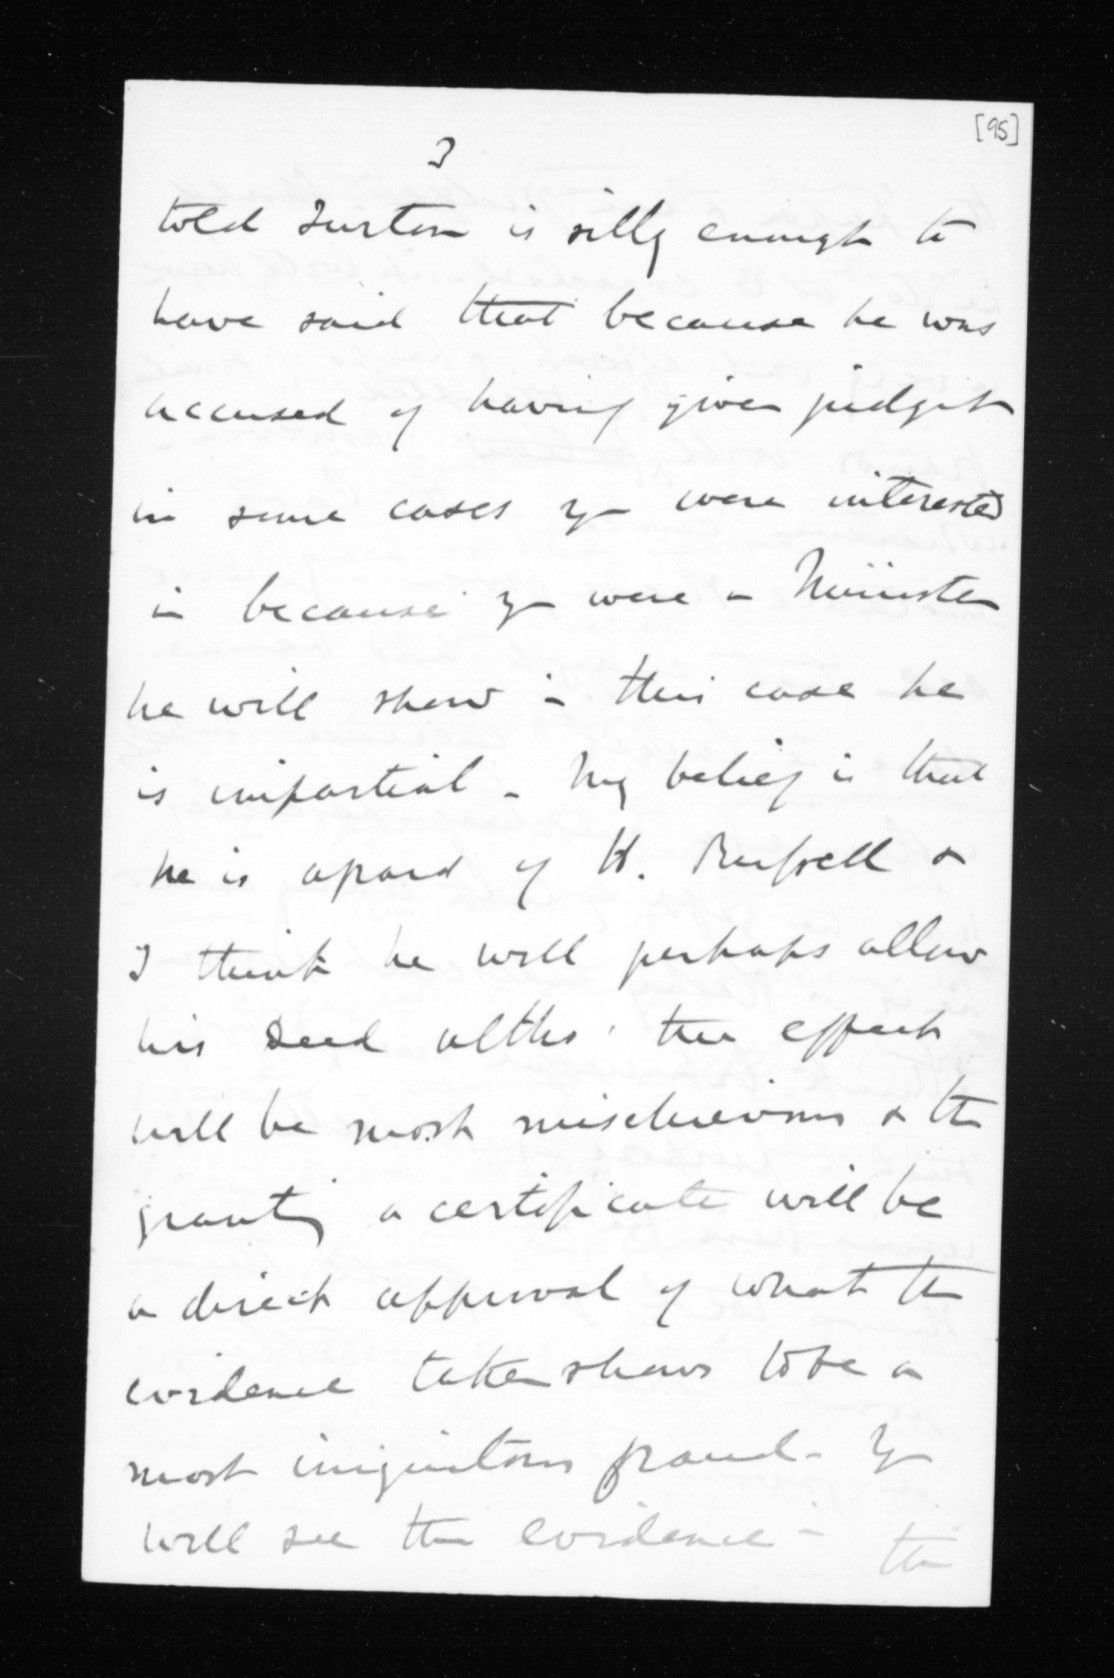 [95]
3
told Turton is silly enough to
have said that because he was
accused of having given judgt
in some cases yu were interested
in because yu were a Minister
he will show in this case he
is impartial - My belief is that
he is afraid of H. Russell &
I think he will perhaps allow
his deed altho' the effect
will be most mischievous & the
granting a certificate will be
a direct approval of what the
evidence taken shows to be a
most iniquitous fraud - Yu
will see the evidence in the